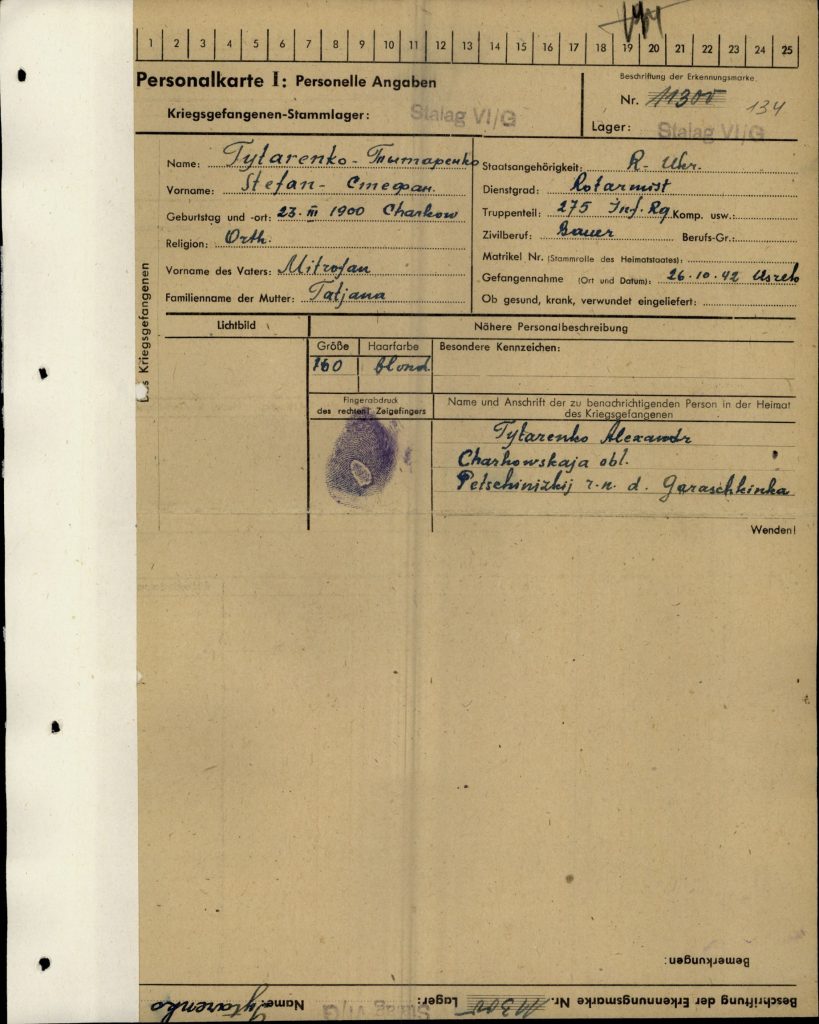 1 2 3 4 5 6 7 8 9 10 11 12 13 14 15 16 17 18 19 20 21 22 23 24 25
Personalkarte I: Personelle Angaben
Kriegsgefangenen-Stammlager: Stalag VI/G
Beschriftung der Erkennungsmarke
Nr. 11300 134
Lager: Stalag VI/G
Des Kriegsgefangenen
Name: Tytarenko - Тытаренко
Vorname: Stefan - Стефан.
Geburtstag und -ort: 23. III 1900 Charkow
Religion: Orth.
Vorname des Vaters: Mitrofan
Familienname der Mutter: Tatjana
Staatsangehörigkeit: R- Ukr.
Dienstgrad: Rotarmist
Truppenteil: 275 Inf. Rg. Komp. usw.:
Zivilberuf: Bauer Berufs-Gr.:
Matrikel Nr. (Stammrolle des Heimatstaates):
Gefangennahme (Ort und Datum): 26.10.42
Ob gesund, krank, verwundet eingeliefert:
Lichtbild
Nähere Personalbeschreibung
Größe Haarfarbe Besondere Kennzeichen:
160 blond
Fingerabdruck
des rechten Zeigefingers
Name und Anschrift der zu benachrichtigenden Person in der Heimat
des Kriegsgefangenen
Tytarenko Alexandr
Charkowskaja obl.
Petschinizkij r.n. d. Garaschkinka
Wenden!
Bemerkungen:
Beschriftung der Erkennungsmarke Nr. 11300 Lager: Stalag VI/G Name: Tytarenko